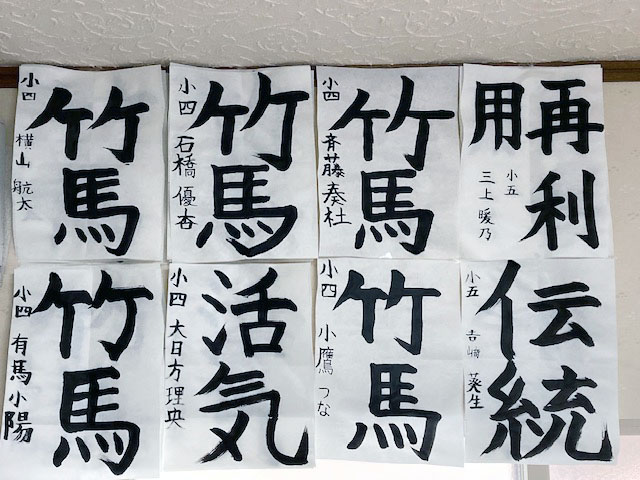 竹馬
小四 横山 航太
竹馬
小四 石橋優杏
竹馬
小四 斉藤奏杜
再利用
小五 三上 暖乃
竹馬
小四 有馬小陽
活気
小四 大日方理央
竹馬
小四 小鷹 つな
伝統
小五 吉 葵生